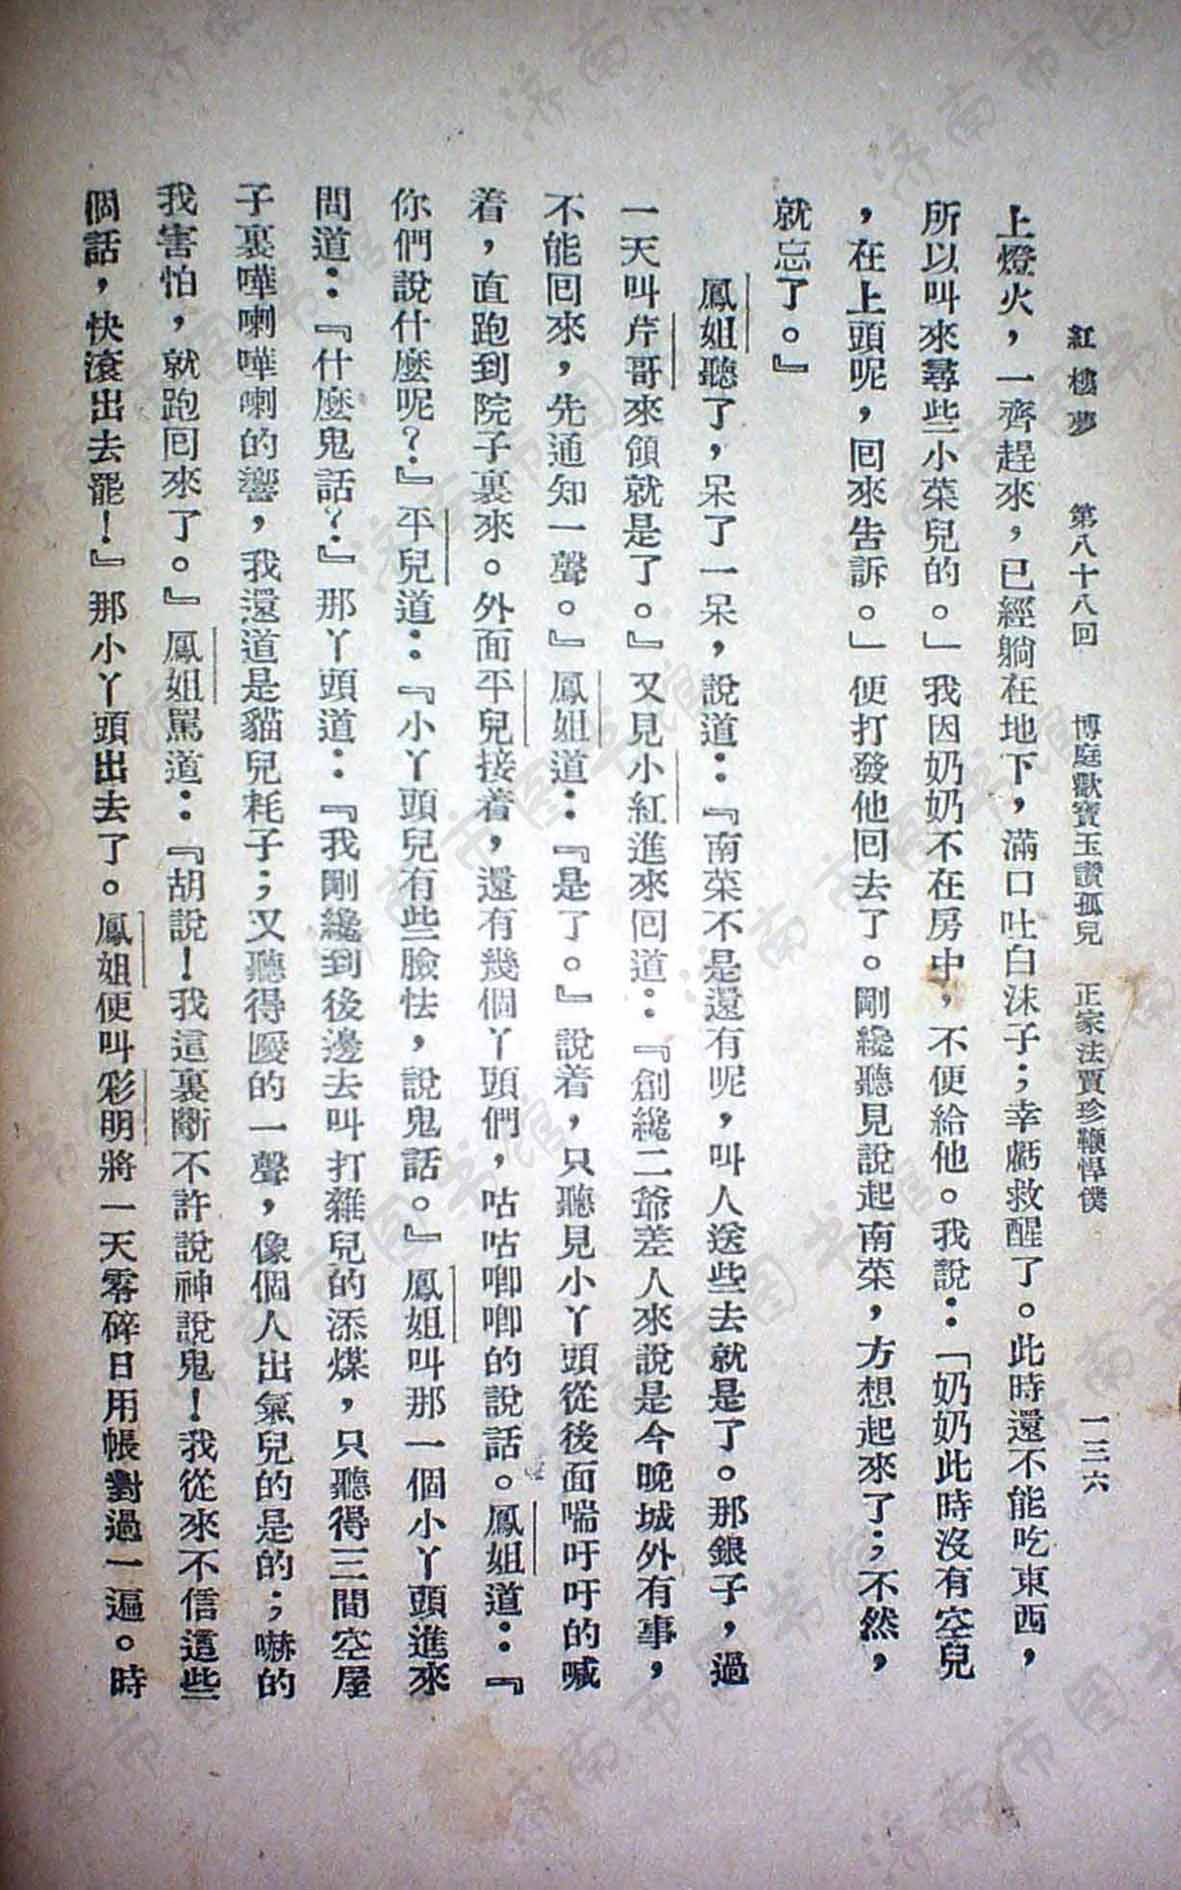 紅樓夢　第八十八回　博庭歡寶玉讚孤兒　正家法賈珍鞭悍僕　一三六
上燈火，一齊趕來，已經躺在地下，滿口吐白沫子；幸虧救醒了。此時還不能吃東西，
所以叫來尋些小菜兒的。」我因奶奶不在房中，不便給他。我說：「奶奶此時沒有空兒
，在上頭呢，回來告訴。」便打發他回去了。剛纔聽見說起南菜，方想起來了；不然，
就忘了。』
鳳姐聽了，呆了一呆，說道：『南菜不是還有呢，叫人送些去就是了。那銀子，過
一天叫芹哥來領就是了。』又見小紅進來回道：『創纔二爺差人來說是今晚城外有事，
不能回來，先通知一聲。』鳳姐道：『是了。』說着，只聽見小丫頭從後面喘吁吁的喊
着，直跑到院子裏來。外面平兒接着，還有幾個丫頭們，咕咕唧唧的說話。鳳姐道：『
你們說什麼呢？』平兒道：『小丫頭兒有些臉怯，說鬼話。』鳳姐叫那一個小丫頭進來
問道：『什麼鬼話？』那丫頭道：『我剛纔到後邊去叫打雜兒的添煤，只聽得三間空屋
子裏嘩喇嘩喇的響，我還道是貓兒耗子；又聽得嗳的一聲，像個人出氣兒的是的；嚇的
我害怕，就跑回來了。』鳳姐罵道：『胡說！我這裏斷不許說神說鬼！我從來不信這些
個話，快滾出去罷！』那小丫頭出去了。鳳姐便叫彩明將一天零碎日用帳對過一遍。時
济南市图书馆